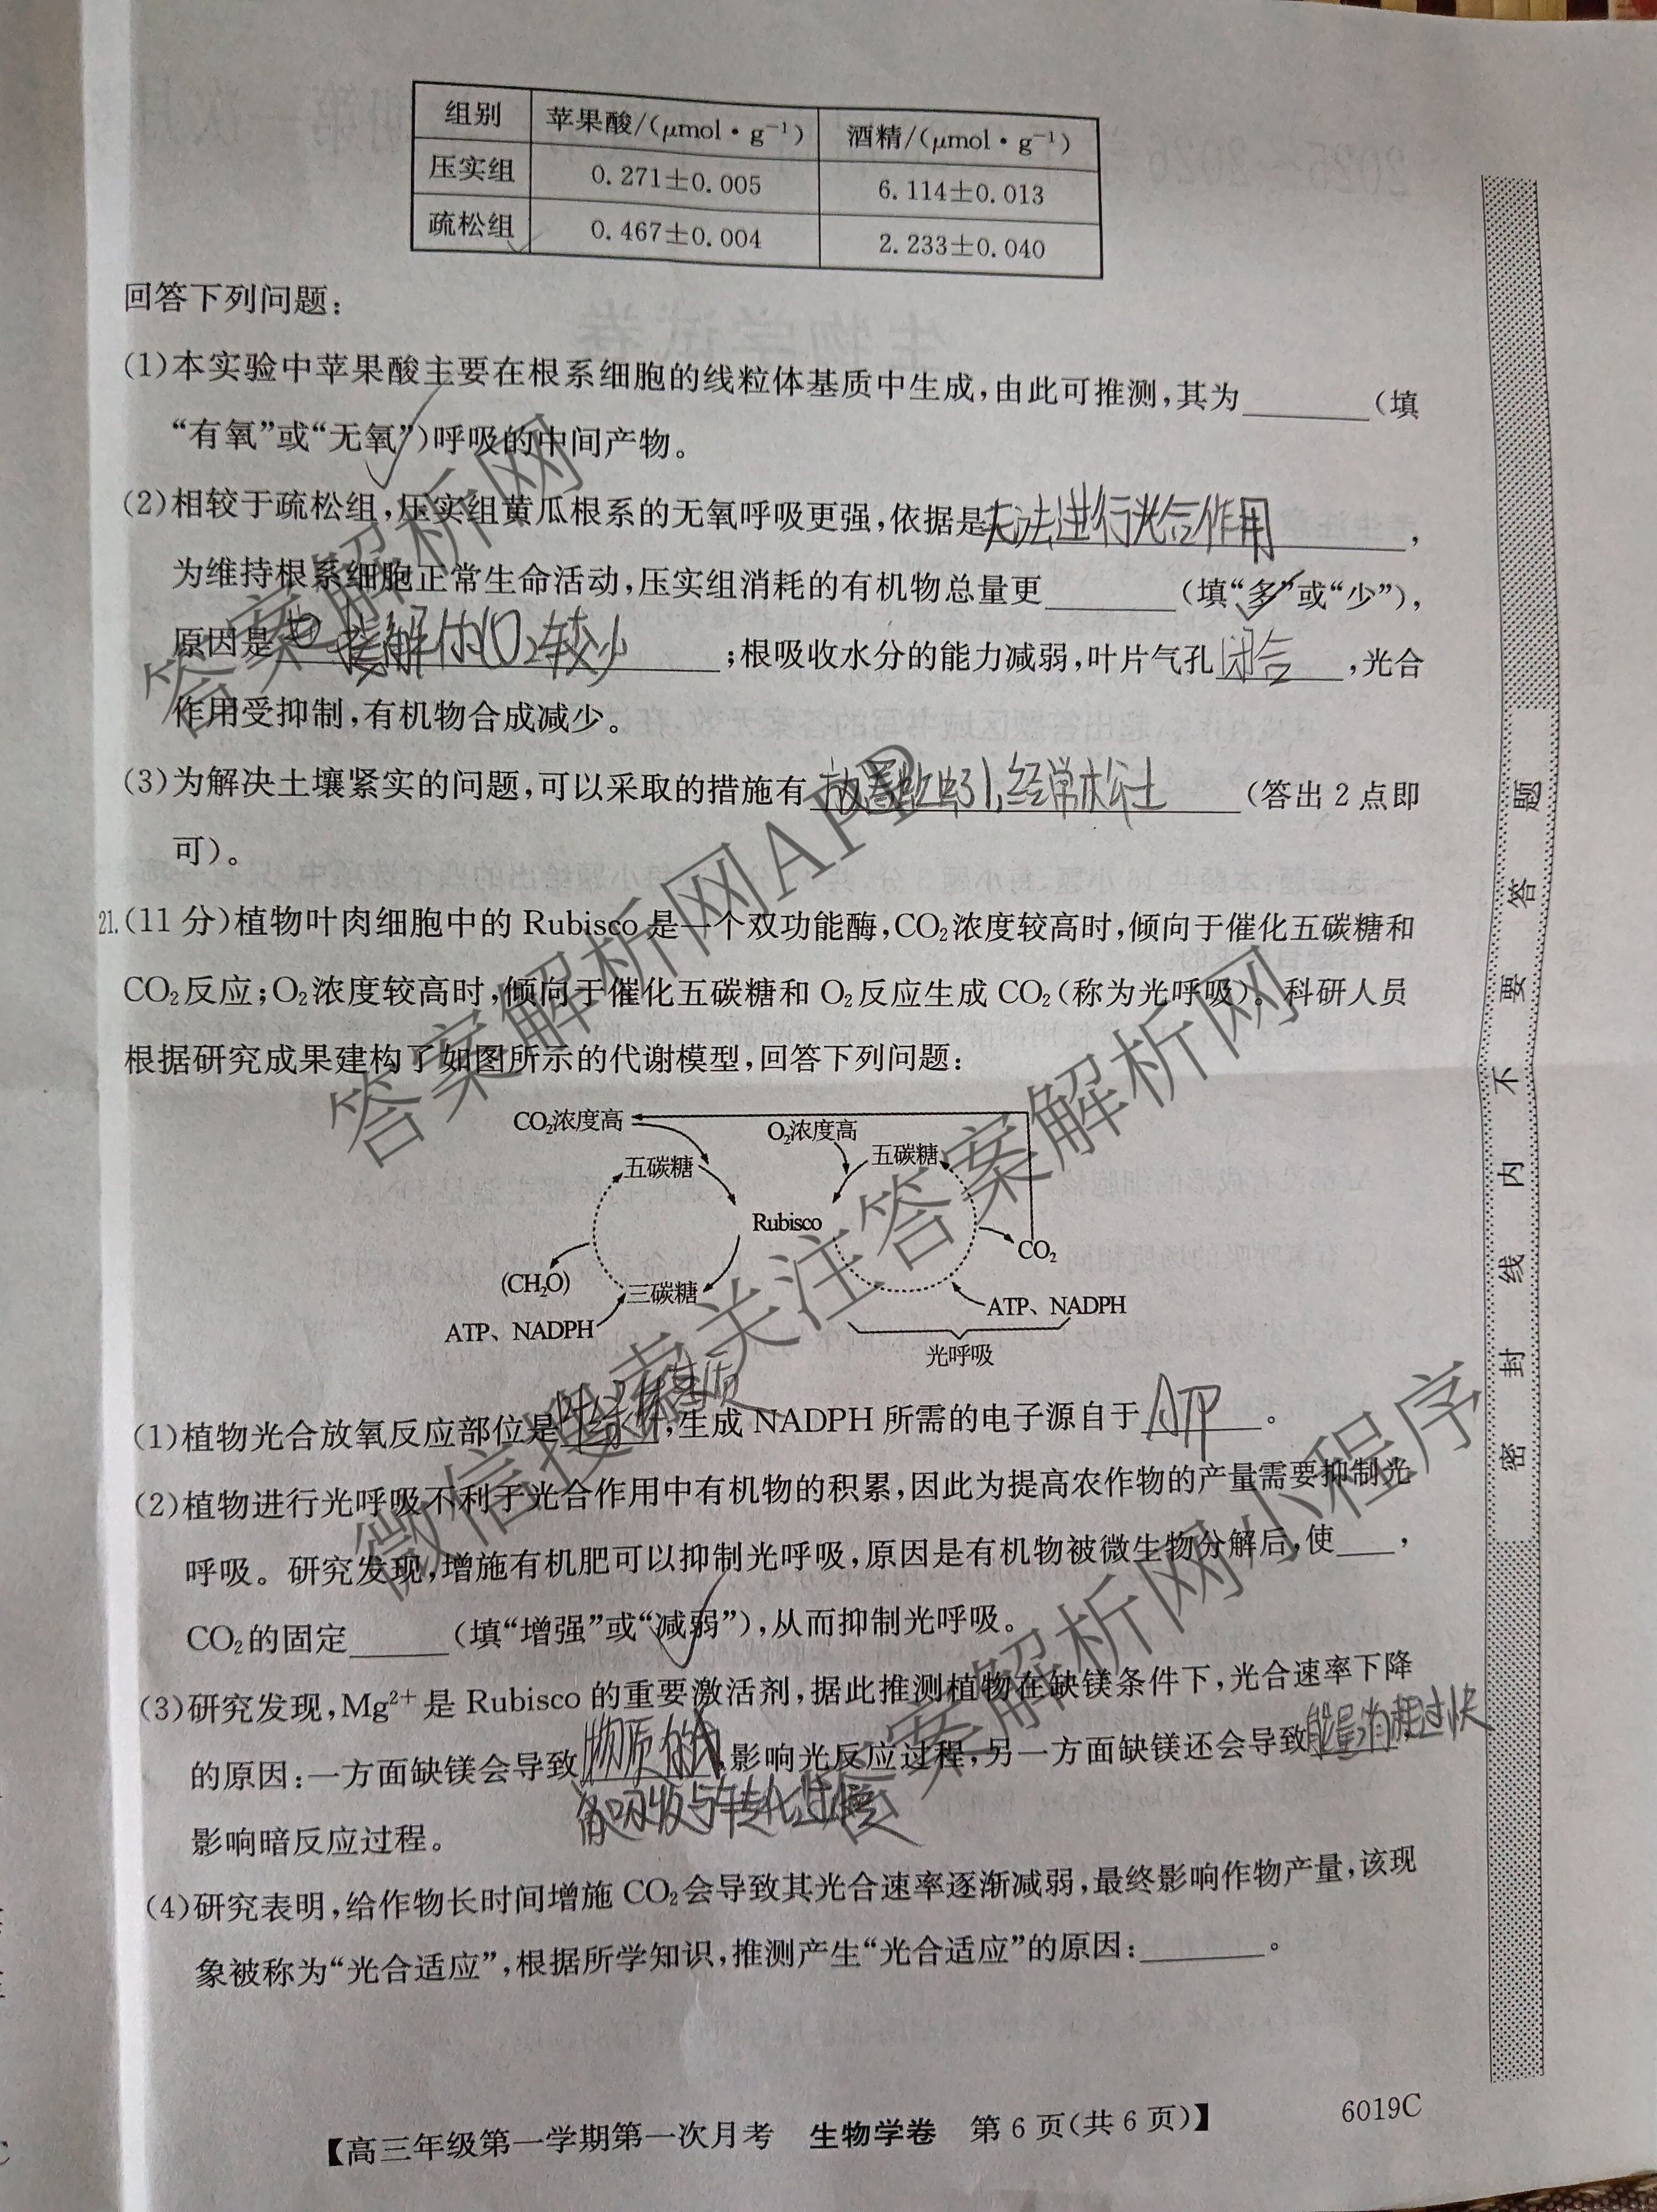 组别 苹果酸/(μmol·g⁻¹) 酒精/(μmol·g⁻¹)
压实组 0.271±0.005 6.114±0.013
疏松组 0.467±0.004 2.233±0.040
回答下列问题:
(1)本实验中苹果酸主要在根系细胞的线粒体基质中生成,由此可推测,其为________(填
“有氧”或“无氧”)呼吸的中间产物。
(2)相较于疏松组,压实组黄瓜根系的无氧呼吸更强,依据是无法进行光合作用,
为维持根系细胞正常生命活动,压实组消耗的有机物总量更________(填“多”或“少”),
原因是 接解的CO₂较少;根吸收水分的能力减弱,叶片气孔闭合,光合
作用受抑制,有机物合成减少。
(3)为解决土壤紧实的问题,可以采取的措施有放养蚯蚓,经常松土(答出2点即
可)。
21.(11分)植物叶肉细胞中的Rubisco是一个双功能酶,CO₂浓度较高时,倾向于催化五碳糖和
CO₂反应;O₂浓度较高时,倾向于催化五碳糖和O₂反应生成CO₂(称为光呼吸)。科研人员
根据研究成果建构了如图所示的代谢模型,回答下列问题:
CO₂浓度高
O₂浓度高
五碳糖
五碳糖
Rubisco
CO₂
(CH₂O)
三碳糖
ATP、NADPH
ATP、NADPH
光呼吸
(1)植物光合放氧反应部位是叶绿体基质,生成NADPH所需的电子源自于ATP。
(2)植物进行光呼吸不利于光合作用中有机物的积累,因此为提高农作物的产量需要抑制光
呼吸。研究发现,增施有机肥可以抑制光呼吸,原因是有机物被微生物分解后,使____,
CO₂的固定______(填“增强”或“减弱”),从而抑制光呼吸。
(3)研究发现,Mg²⁺是Rubisco的重要激活剂,据此推测植物在缺镁条件下,光合速率下降
的原因:一方面缺镁会导致物质的,影响光反应过程,另一方面缺镁还会导致能量消耗过快
吸收与转化过慢
影响暗反应过程。
(4)研究表明,给作物长时间增施CO₂会导致其光合速率逐渐减弱,最终影响作物产量,该现
象被称为“光合适应”,根据所学知识,推测产生“光合适应”的原因:________。
【高三年级第一学期第一次月考 生物学卷 第6页(共6页)】
6019C
密封线内不要答题
答案解析网
答案解析网APP
微信搜索关注答案解析网
答案解析网小程序